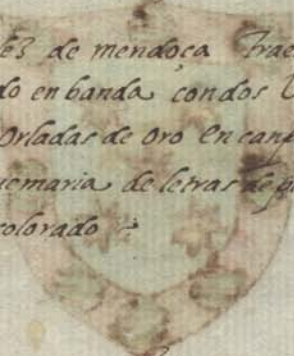 de mendoça Trae
do en banda con dos
Orladas de oro En canp
uemaria de letras de
colorado